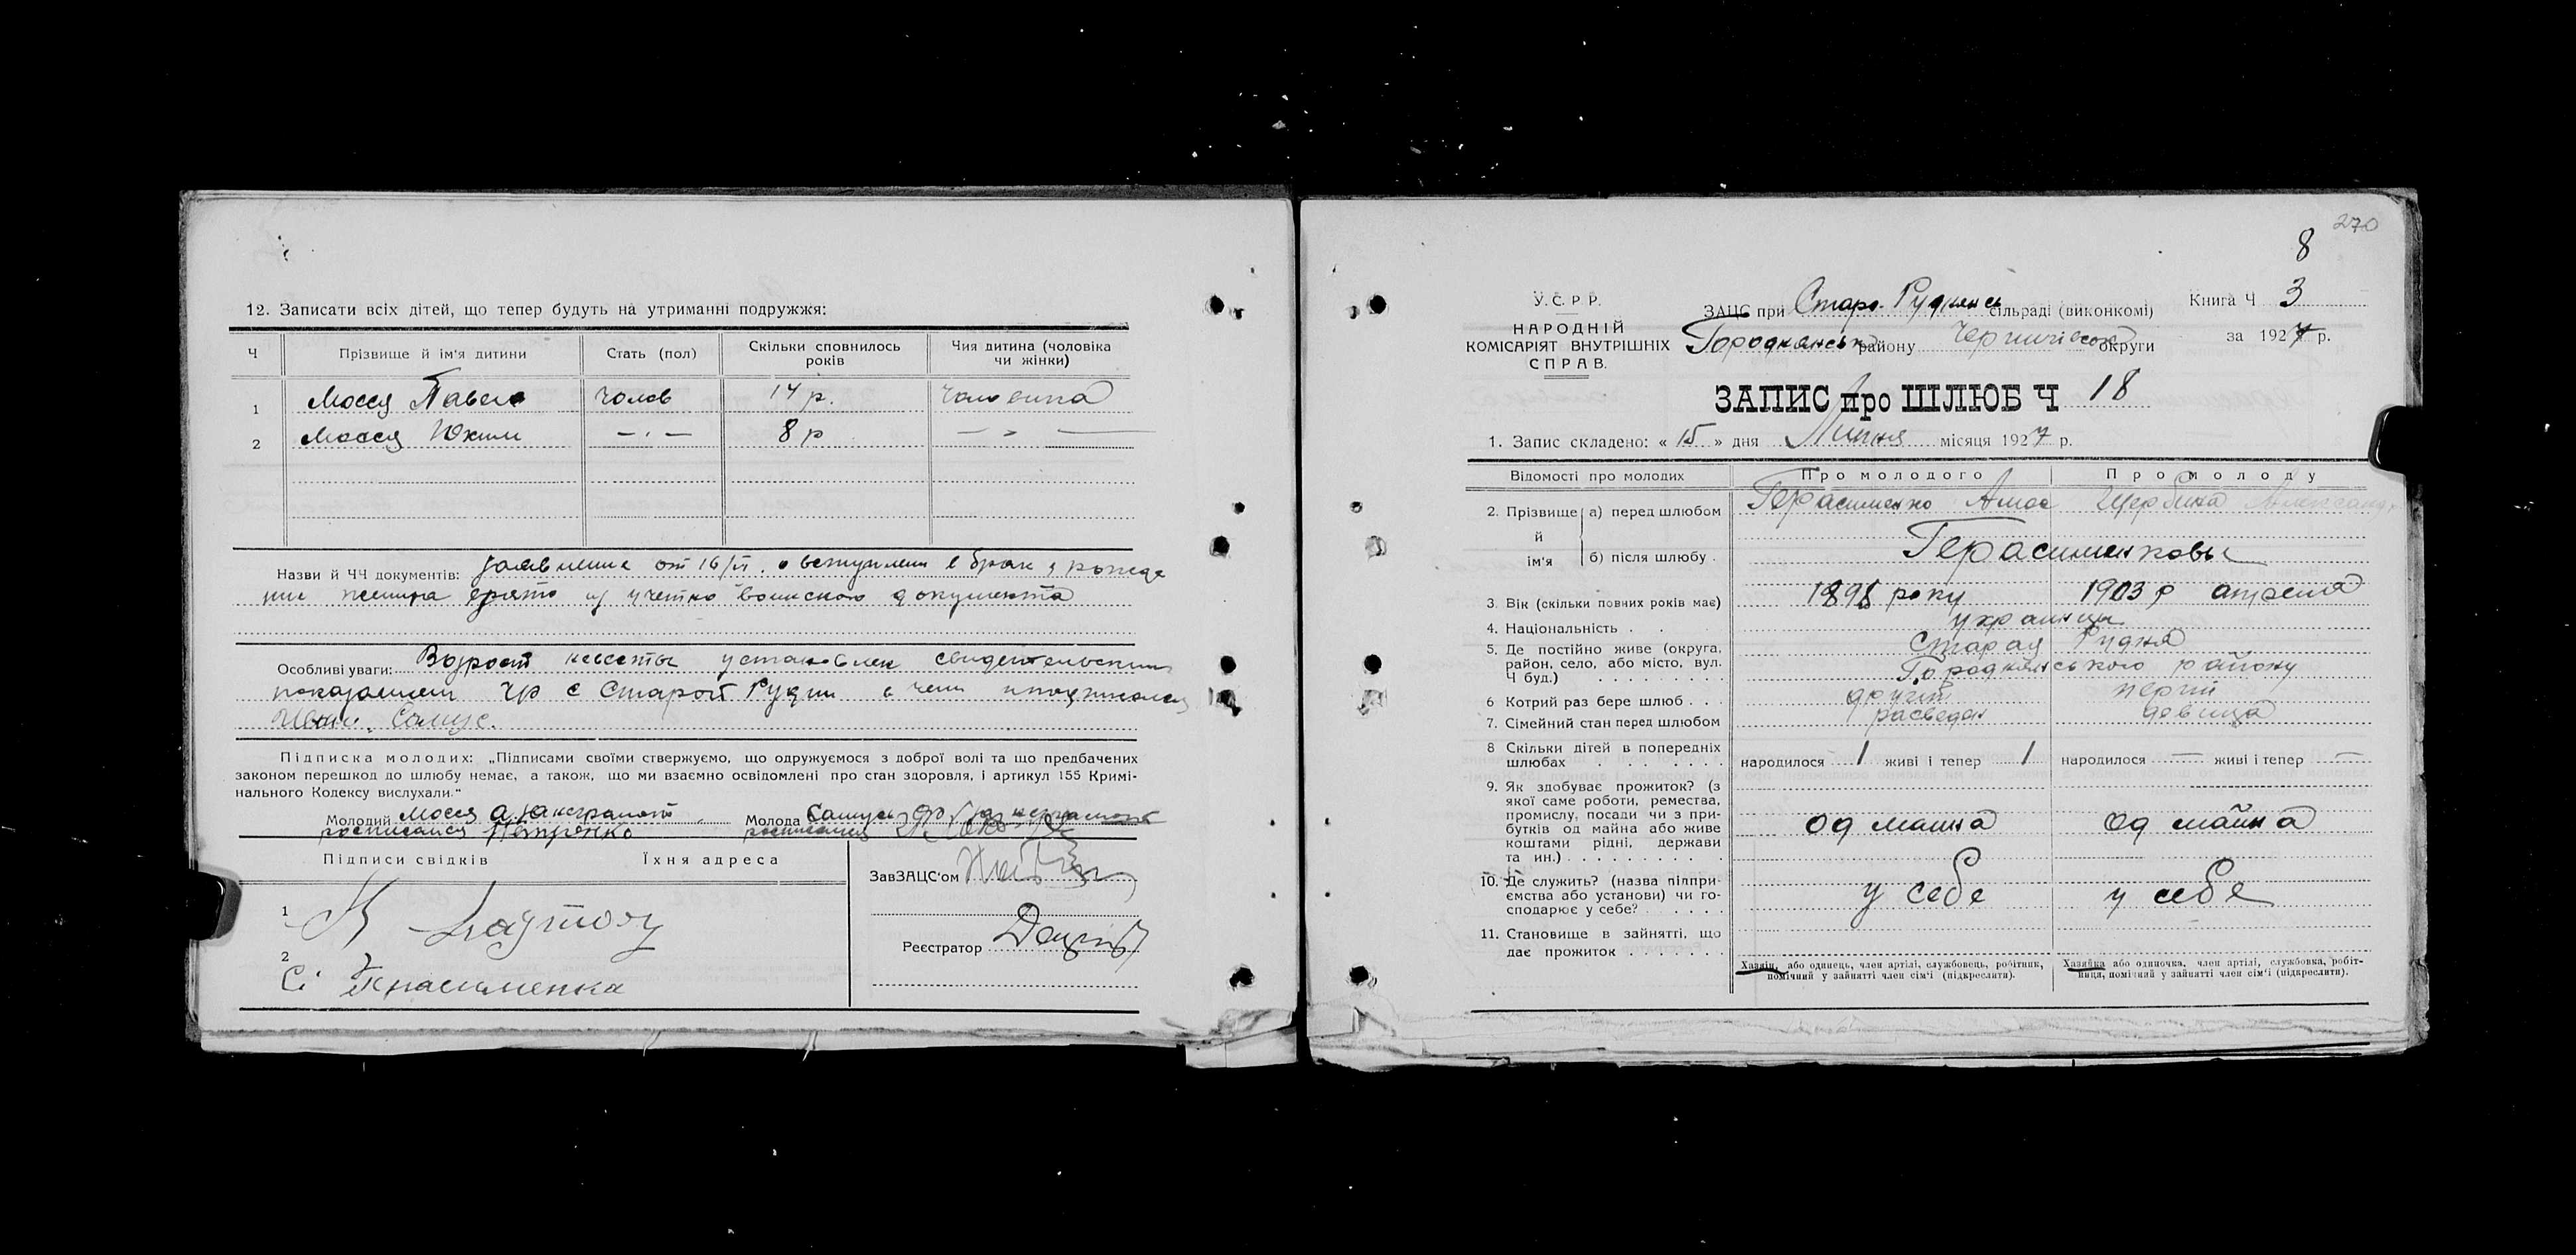 12. Записати всіх дітей, що тепер будуть на утриманні подружжя:
Ч Прізвище й ім'я дитини Стать (пол) Скільки сповнилось років Чия дитина (чоловіка чи жінки)
1 Мосся Павел чолов 14 р. чоловіка
2 Мосся Юхим — · — 8 р — » —
Назви й ЧЧ документів: заявление от 16/VI о вступлении в брак, рожде
ние жениха взято из учетно воинского документа
Особливі уваги: Возраст невесты установлен свидетельским
показанием гр с Старой Рудни в чем
Самус.
Підписка молодих: „Підписами своїми стверджуємо, що одружуємося з доброї волі та що предбачених
законом перешкод до шлюбу немає, а також, що ми взаємно освідомлені про стан здоровля, і артикул 155 Кримі-
нального Кодексу вислухали."
Молодий Мосся а за неграмот. Молода Самусь за неграмот
росписался Петренко росписался
Підписи свідків Їхня адреса
ЗавЗАЦС'ом
1
Реєстратор
2
С. Герасименка
270
8
У.С.Р.Р.
НАРОДНІЙ
КОМІСАРІЯТ ВНУТРІШНІХ
СПРАВ.
ЗАЦС при Старо-Руднянс сільраді (виконкомі)
Городнянськ району Чернигівськ округи
Книга Ч 3
за 1927 р.
ЗАПИС про ШЛЮБ Ч 18
1. Запис складено: « 15 » дня Липня місяця 1927 р.
Відомості про молодих Про молодого Про молоду
2. Прізвище й ім'я а) перед шлюбом Герасименко Амос Щербина Александр
б) після шлюбу . Герасименковы
3. Вік (скільки повних років має) 1898 року 1903 р апреля
4. Національність . . украинцы
5. Де постійно живе (округа, район, село, або місто, вул. Ч буд.) . . . . . . . . . Старая Рудня
Городнянського району
6 Котрий раз бере шлюб . . . другій перший
7. Сімейний стан перед шлюбом розведен девица
8 Скільки дітей в попередніх шлюбах . . . . . . . народилося 1 живі і тепер 1 народилося — живі і тепер —
9. Як здобуває прожиток? (з
якої саме роботи, ремества,
промислу, посади чи з при-
бутків од майна або живе
коштами рідні, держави
та ин.) . . . . . . . . . .
од майна од майна
10. Де служить? (назва підпри-
ємства або установи) чи го-
сподарює у себе? . . . . .
у себе у себе
11. Становище в зайнятті, що
дає прожиток . . . . . . .
Хазяїн, або одинець, член артілі, службовець, робітник,
помічний у зайнятті член сім'ї (підкреслити).
Хазяйка або одиночка, член артілі, службовка, робіт-
ниця, помічний у зайнятті член сім'ї (підкреслити).